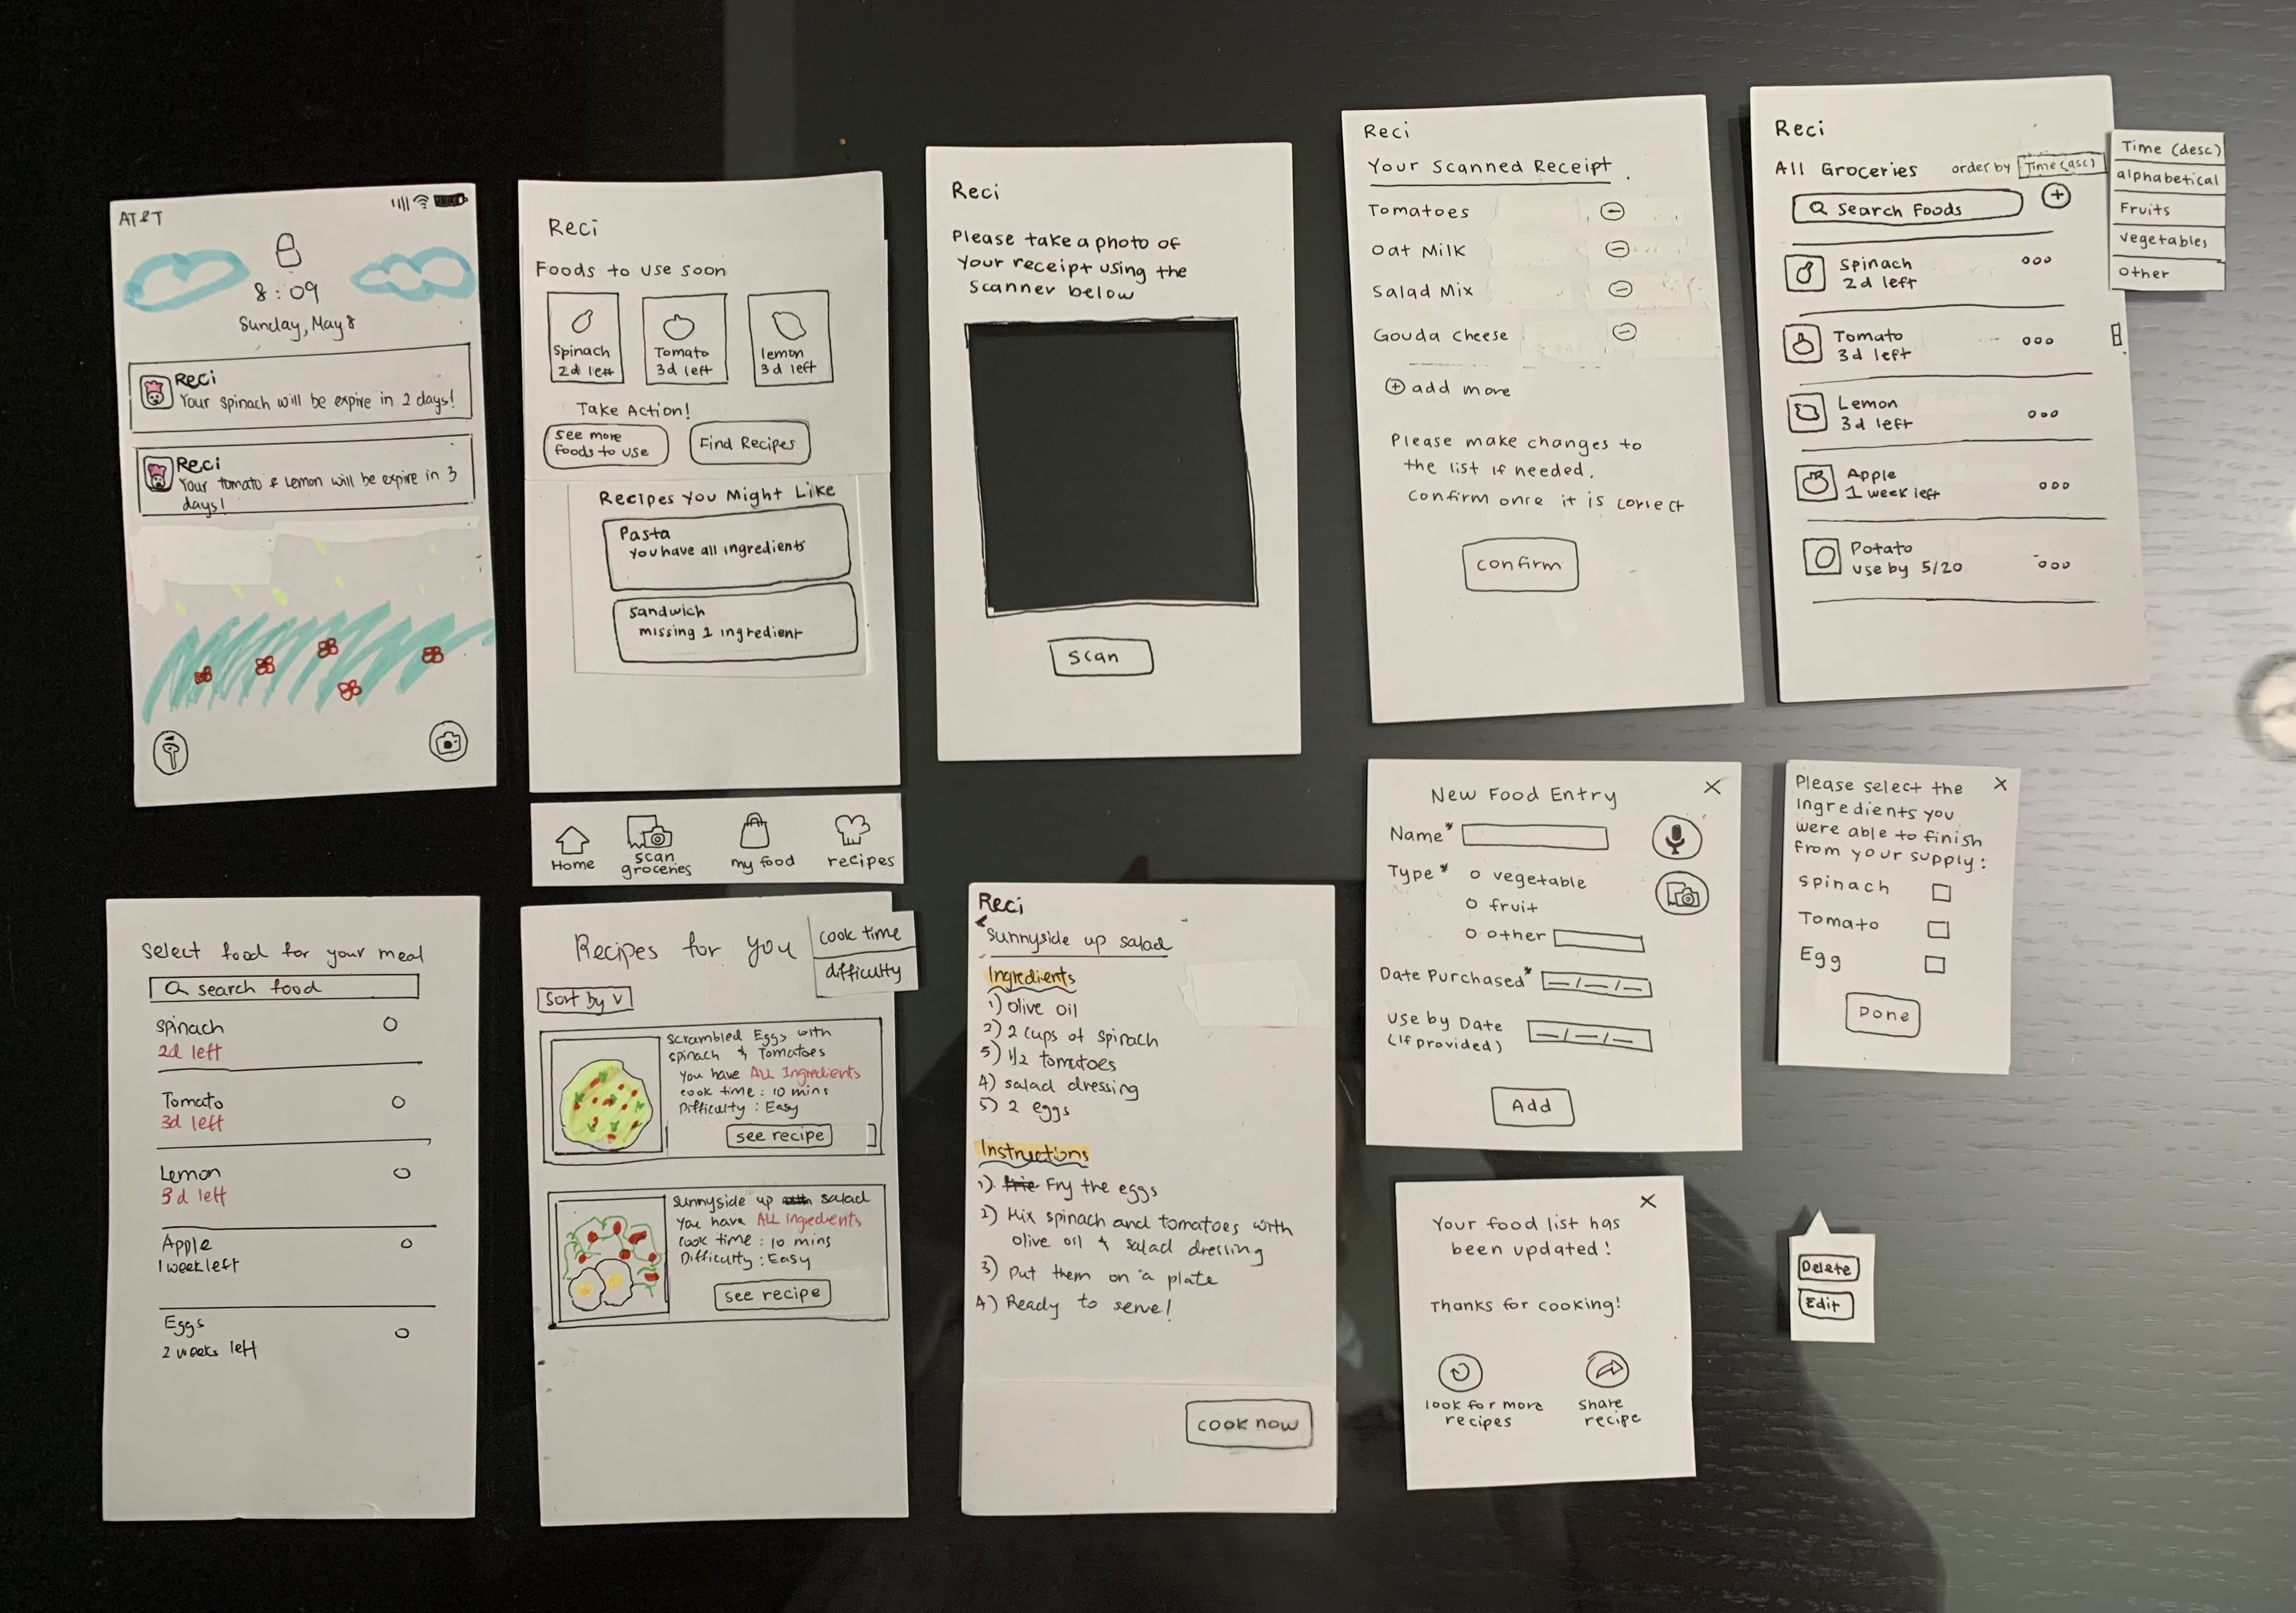 AT&T
8:09
Sunday, May 8
Reci
Your spinach will be expire in 2 days!
Reci
Your tomato & lemon will be expire in 3
days!
Reci
Foods to use soon
Spinach
2d left
Tomato
3d left
lemon
3d left
Take Action!
See more
foods to use
Find Recipes
Recipes You Might Like
Pasta
You have all ingredients
Sandwich
missing 1 ingredient
Home
scan
groceries
my food
recipes
Reci
Please take a photo of
your receipt using the
scanner below
Scan
Reci
Your Scanned Receipt
Tomatoes
Oat Milk
Salad Mix
Gouda Cheese
add more
Please make changes to
the list if needed.
Confirm once it is correct
Confirm
Reci
All Groceries order by Time(asc)
Search Foods
Spinach
2d left
Tomato
3d left
Lemon
3d left
Apple
1 week left
Potato
use by 5/20
Time (desc)
alphabetical
Fruits
vegetables
other
select food for your meal
search food
spinach
2d left
Tomato
3d left
Lemon
3d left
Apple
1 week left
Eggs
2 weeks left
Recipes for you
cook time
difficulty
Sort by v
Scrambled Eggs with
spinach & Tomatoes
You have ALL Ingredients
cook time : 10 mins
Difficulty : Easy
see recipe
Sunnyside up salad
You have ALL ingredients
cook time : 10 mins
Difficulty : Easy
see recipe
Reci
< Sunnyside up salad
Ingredients
1) olive oil
2) 2 cups of spinach
5) 1/2 tomatoes
4) salad dressing
5) 2 eggs
Instructions
1) frie Fry the eggs
2) Mix spinach and tomatoes with
olive oil & salad dressing
3) Put them on a plate
4) Ready to serve!
cook now
New Food Entry X
Name*
Type* o vegetable
o fruit
o other
Date Purchased* _/_/_
Use by Date _/_/_
(If provided)
Add
Please select the X
ingredients you
were able to finish
from your supply:
Spinach
Tomato
Egg
Done
X
Your food list has
been updated!
Thanks for cooking!
look for more
recipes
share
recipe
Delete
Edit